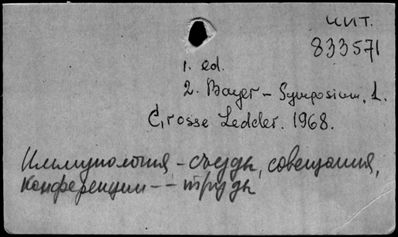 чит.
833571
1. ed.
2. Bayer - Symposium, 1.
Grosse Ledder. 1968.
Иммунология - съезды, совещания,
конференции -- труды